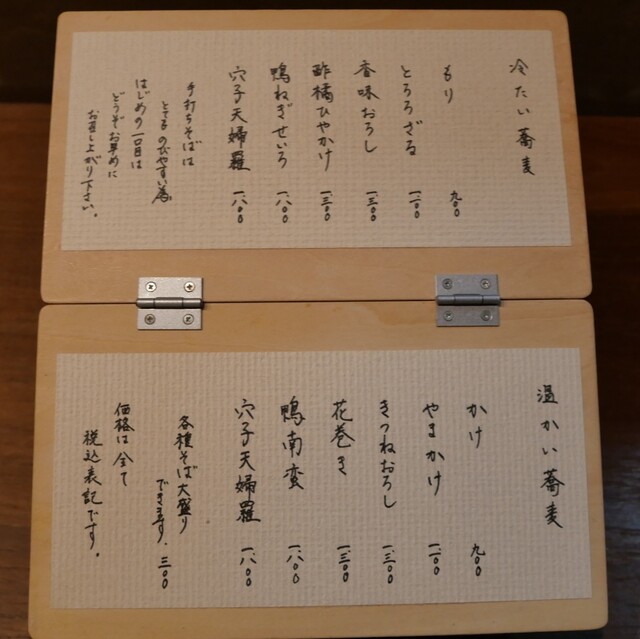 冷たい蕎麦
もり 九〇〇
とろろざる 一、二〇〇
香味おろし 一、三〇〇
酢橘ひやかけ 一、三〇〇
鴨ねぎせいろ 一、八〇〇
穴子天婦羅 一、八〇〇
手打ちそばは
とてものびやすい為
はじめの一口目は
どうぞお早めに
お召し上がり下さい。
温かい蕎麦
かけ 九〇〇
やまかけ 一、二〇〇
きつねおろし 一、三〇〇
花巻き 一、三〇〇
鴨南蛮 一、八〇〇
穴子天婦羅 一、八〇〇
各種そば大盛り
できます。 三〇〇
価格は全て
税込表記です。